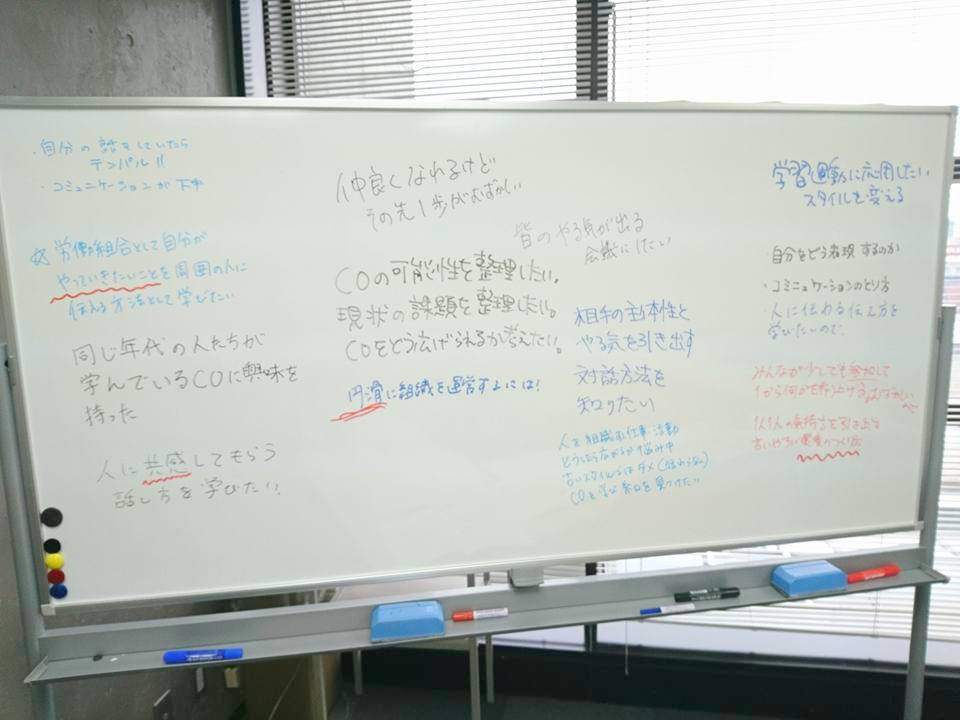 ・自分の話をしていたら
テンパル!!
・コミュニケーションが下手
☆労働組合として自分が
やっていきたいことを周囲の人に
伝える方法として学びたい
同じ年代の人たちが
学んでいるCOに興味を
持った
人に共感してもらう
話し方を学びたい!
仲良くなれるけど
その先1歩がむずかしい
皆のやる気が出る
会議にしたい
COの可能性を整理したい。
現状の課題を整理したい。
COをどう広げられるか考えたい。
円滑に組織を運営するには!
相手の主体性と
やる気を引き出す
対話方法を
知りたい
人を組織する仕事 活動
どうしたら広がるか悩み中
古いスタイルではダメ(伝わらない)
COを学び糸口を見つけたい
学習運動に応用したい
スタイルを変える
自分をどう表現するのか
・コミュニケーションのとり方
人に伝わる伝え方を
学びたいので、
みんなが少しでも参加して
1から何かを作り上げるのはむずかしい
1人1人の気持ちを引き出す
言いやすい のつくり方